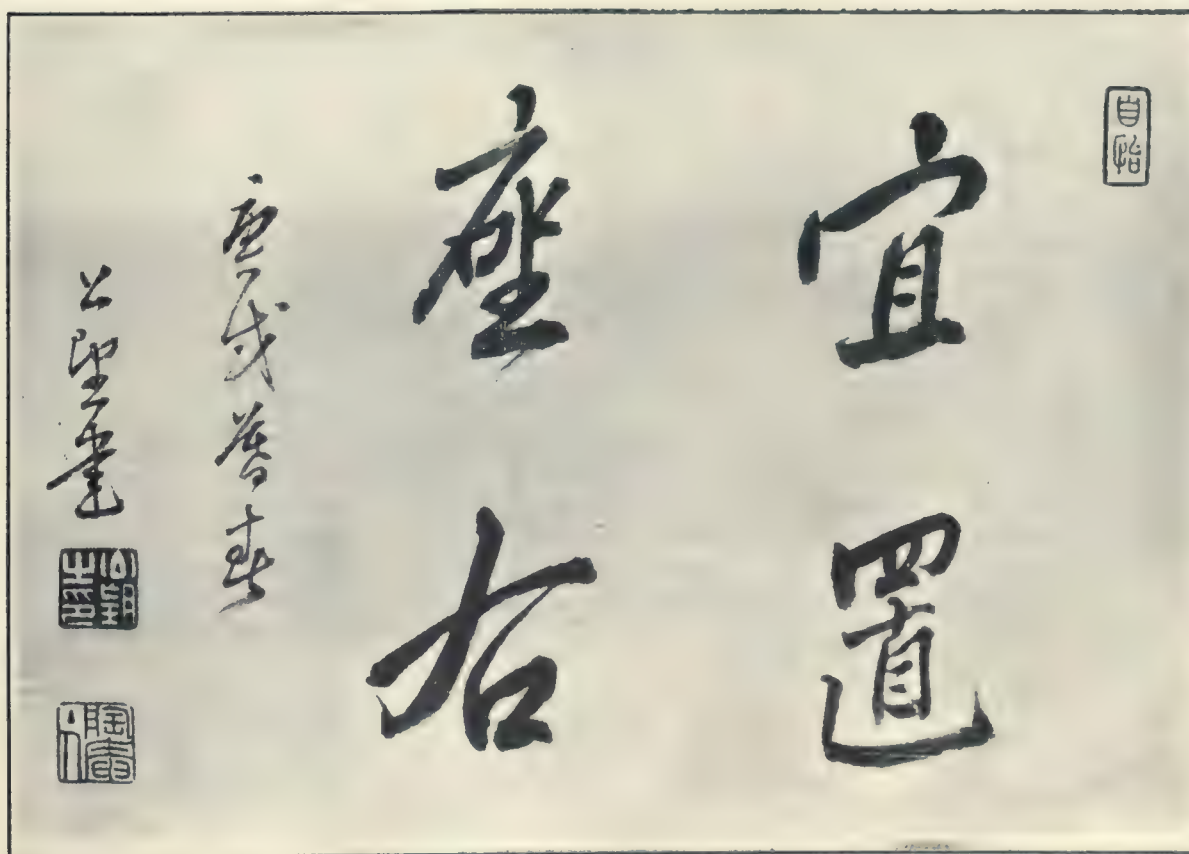 自怡
宜置
座右
庚戌暮春
公望書